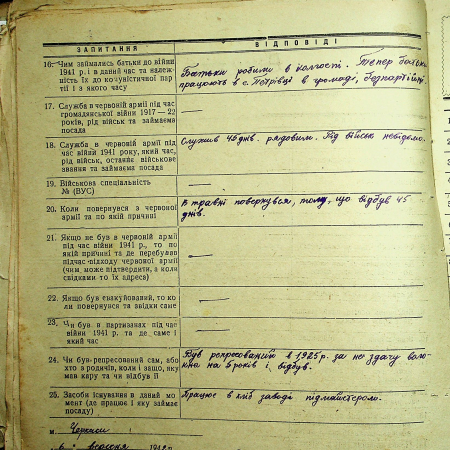 ЗАПИТАННЯ
ВІДПОВІДІ
16. Чим займались батьки до війни
1941 р. і в даний час та належ-
ність їх до комуністичної пар-
тії і з якого часу
Батьки робили в колгоспі. Тепер батьки
працюють в с. Петрівці в громаді, безпартійні
17. Служба в червоній армії під час
громадянської війни 1917—22
років, рід військ та займаєма
посада
—
18. Служба в червоній армії під
час війни 1941 року, який час,
рід військ, останнє військове
звання та займаєма посада
Служив 45 днів. рядовим. Рід військ невідомо.
19. Військова спеціальність
№ (ВУС)
—
20. Коли повернувся з червоної
армії та по якій причині
В травні повернувся, тому, що відбув 45
днів.
21. Якщо не був в червоній армії
під час війни 1941 р., то по
якій причині та де перебував
підчас відходу червоної армії
(чим, може підтвердити, а коли
свідками то їх адреса)
—
22. Якщо був евакуйований, то ко
ли повернувся та звідки саме
—
23. Чи був в партизанах під час
війни 1941 р. та де саме і
який час
—
24. Чи був репресований сам, або
хто з родичів, коли і защо, яку
мав кару та чи відбув її
Був репресований в 1925 р. за не здачу
на 5 років і відбув.
25. Засоби існування в даний мо
мент (де працює і яку займає
посаду)
Працює в хліб заводі підмайстером.
м. Черкаси
"6" вересня 1942 р.